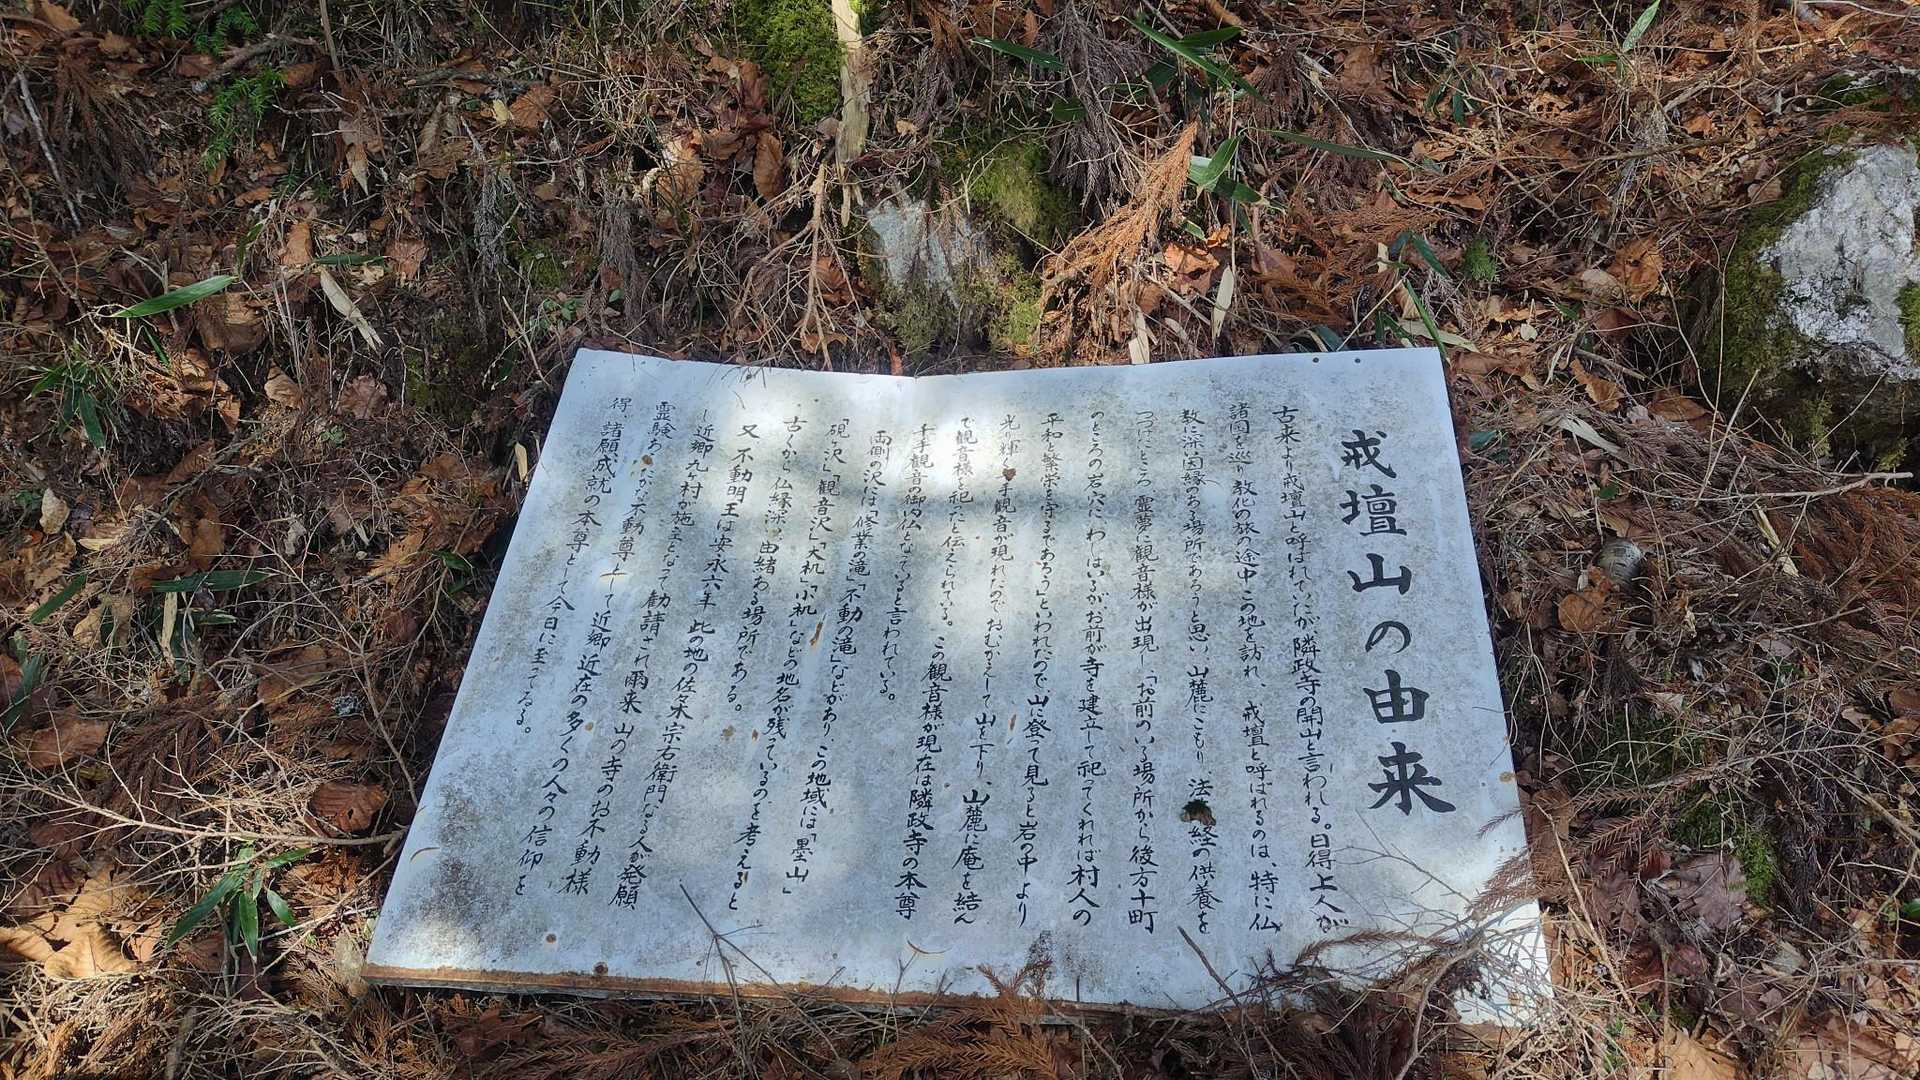 戒壇山の由来
古来より戒壇山と呼ばれていたが隣政寺の開山と言われる。日得上人が
諸国を巡り教化の旅の途中この地を訪れ、戒壇と呼ばれるのは、特に仏
教に深い因縁のある場所であろうと思い、山麓にこもり、法 経の供養を
つづけたところ霊夢に観音様が出現し、「お前のいる場所から後方十町
のところの岩穴にわしはいるが、お前が寺を建立して祀ってくれれば村人の
平和と繁栄を守るであろう」といわれたので、山に登って見ると岩の中より
光り輝く千手観音が現れたのでおむかえして山を下り、山麓に庵を結ん
で観音様を祀ったと伝えられている。この観音様が現在は隣政寺の本尊
千手観音の御内仏となっていると言われている。
両側の沢には「修業の滝」不動の滝」などがあり、この地域には「墨山」
硯ヶ沢」「観音沢」「大机」「小机」などの地名が残っているのを考えると
古くから仏縁深い由緒ある場所である。
又、不動明王は安永六年 此の地の佐々木宗右衛門なる人が発願
し近郷九ヶ村が施主となって勧請され雨来 山の寺のお不動様
霊験あらたかな不動尊として近郷 近在の多くの人々の信仰を
得、諸願成就の本尊として今日に至ってゐる。